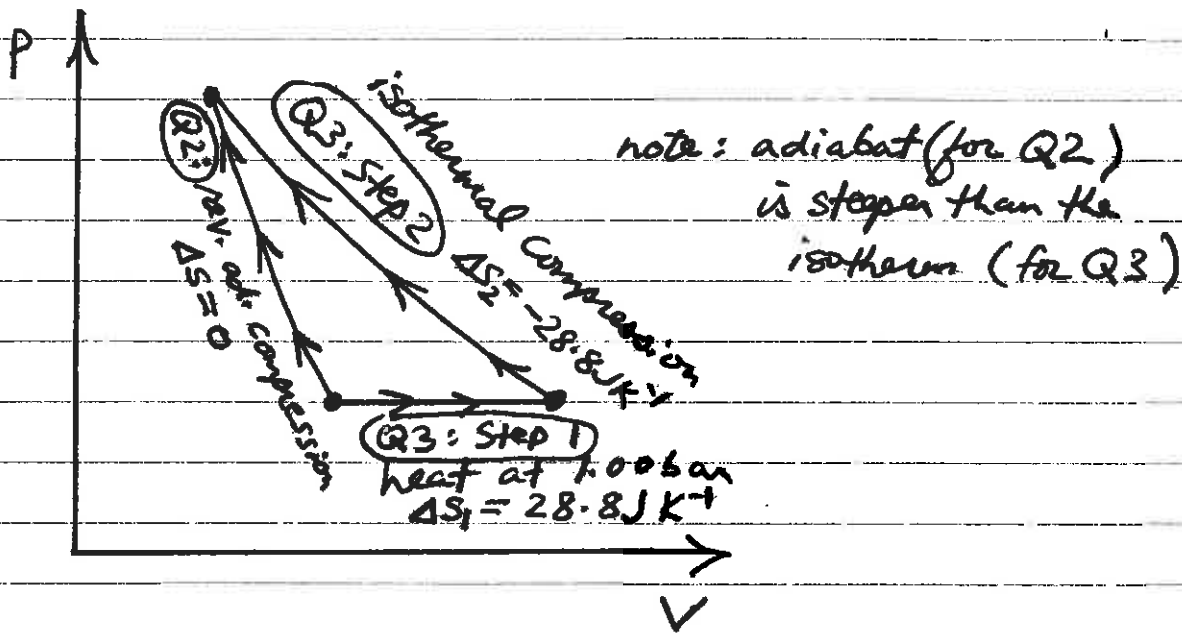 P
Q2:
rev. ad. compression
ΔS = 0
Q3: Step 2
isothermal compression
ΔS₂ = -28.8 J K⁻¹
note: adiabat (for Q2)
is steeper than the
isotherm (for Q3)
Q3: Step 1
heat at 1.00 bar
ΔS₁ = 28.8 J K⁻¹
V